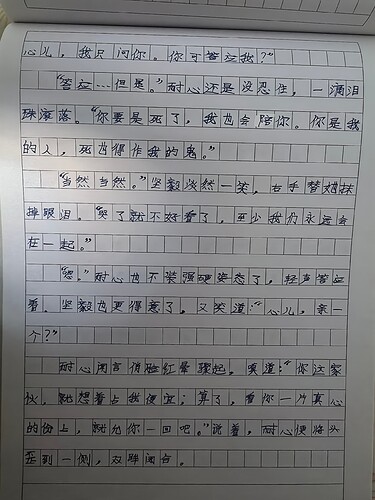 心儿，我只问你。你可答应我？”
“答应…但是。”耐心还是没忍住，一滴泪
珠滚落。“你要是死了，我也会陪你。你是我
的人，死也得作我的鬼。”
“当然当然。”坚毅淡然一笑，右手替她抹
掉眼泪。“哭了就不好看了，至少我们永远会
在一起。”
“嗯。”耐心也不装强硬姿态了，轻声答应
着。坚毅也更得意了，又笑道：“心儿，亲一
个？”
耐心闻言俏脸红晕骤起，嗔道：“你这家
伙，就想着占我便宜；算了，看你一片真心
的份上，就允你一回吧。”说着，耐心便将头
歪到一侧，双眸闭合。